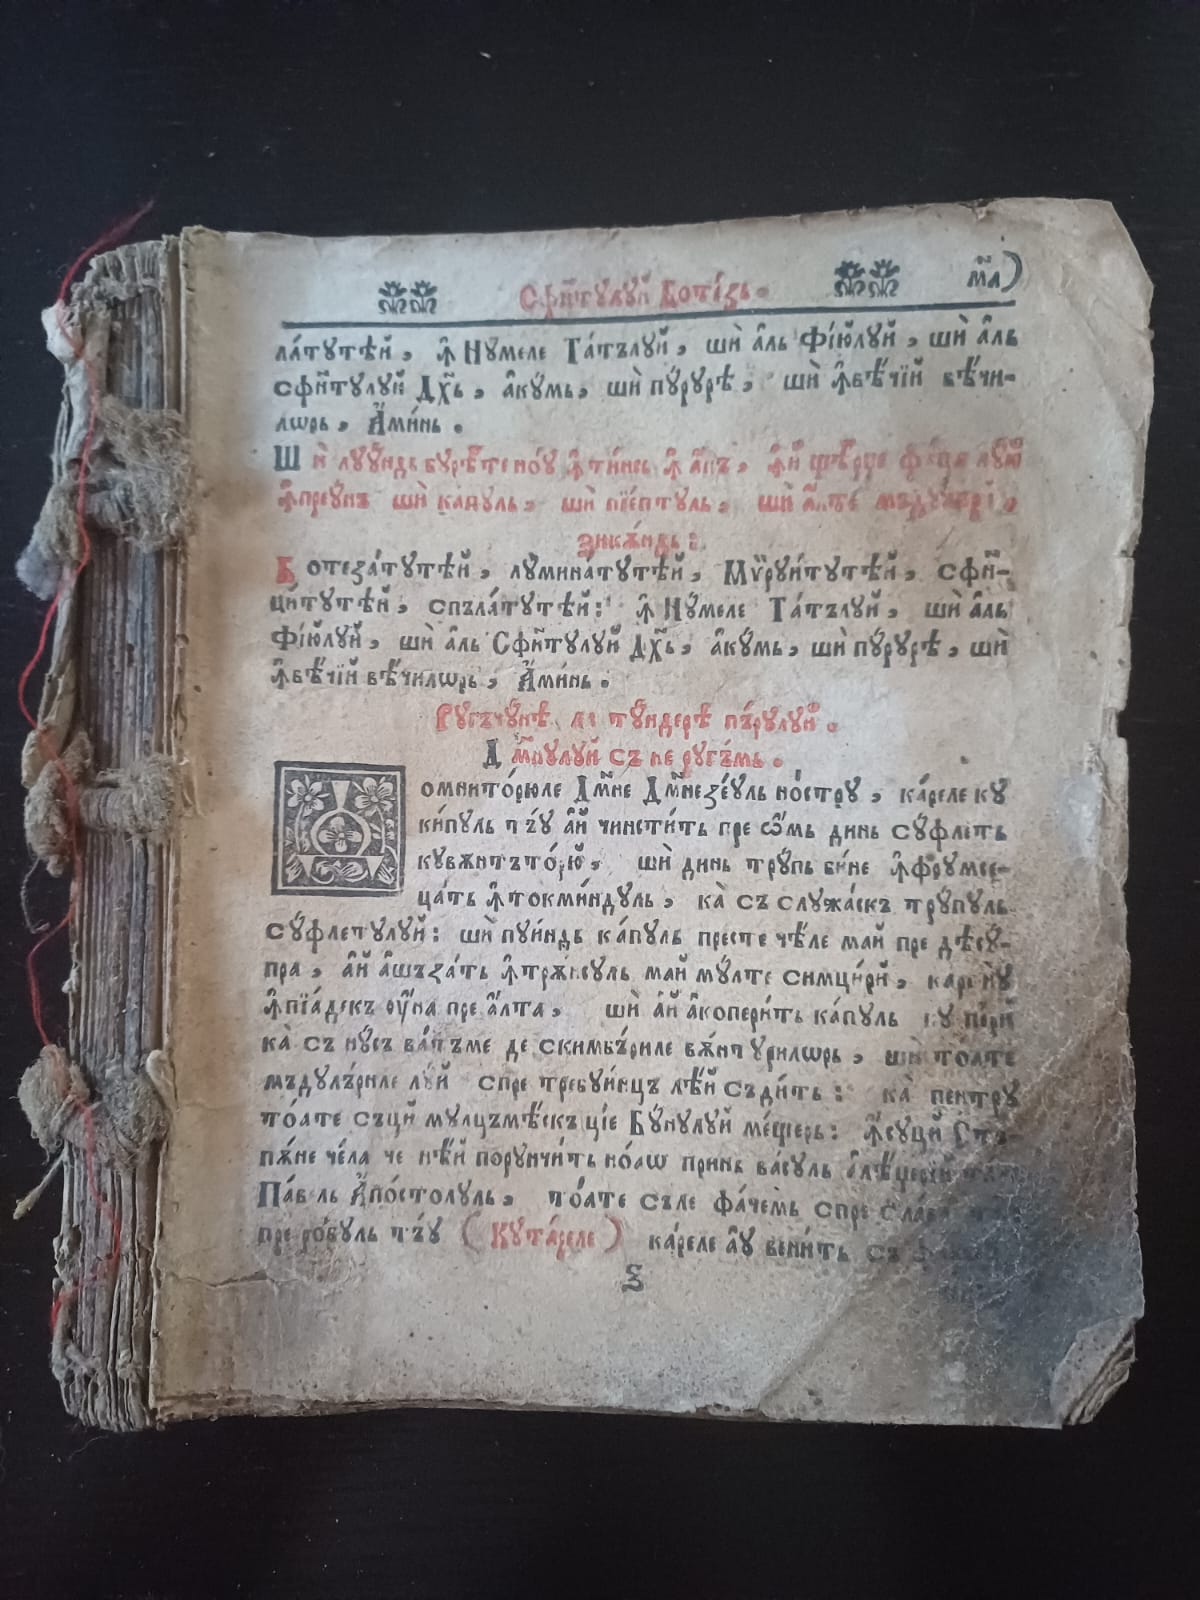 Сфн҃тулуй Ботѣзь. м҃а
ла́тутѣй, ꙟ Нꙋмеле Та́тълꙋй, шѝ а҆ль Фїю́лꙋй, шѝ а҆ль
сфн҃тулꙋй Дх҃ь, а҆кꙋ́мь, шѝ пꙋ́рꙋрѣ, шѝ ꙟвѣ́чїй вѣ́чи-
лѡрь, А҆ми́нь.
Шѝ лꙋѫндь бꙋрѣте но́ꙋ ꙟти́нсь ꙟ а҆пъ,
ꙟпреꙋ́нъ шѝ ка́пꙋль, шѝ пїе́птꙋль, шѝ а҆лте
зикѫ́ндь:
Ботеза́тꙋтѣй, лꙋмина́тꙋтѣй, Мѷрꙋи́тꙋтѣй, сфн҃-
ци́тꙋтѣй, спъла́тꙋтѣй: ꙟ Нꙋ́меле Та́тълꙋй, шѝ а҆ль
Фїю́лꙋй, шѝ а҆ль Сфн҃тꙋлꙋй Дх҃ь, а҆кꙋ́мь, шѝ пꙋ́рꙋрѣ, шѝ
ꙟвѣ́чїй вѣ́чилѡрь, А҆ми́нь.
Рꙋгъчю́нѣ ла тꙋ́ндерѣ пъ́рꙋлꙋй.
Дм҃нꙋлꙋй съ не рꙋгъ́мь.
Домнито́рюле Дм҃не Дм҃незе́ꙋль но́стрꙋ, ка́реле кꙋ
ки́пꙋль тъ́ꙋ а҆й чинсти́ть пре ѡ҆мь динь сꙋ́флеть
кꙋвѫнтъто́рю, шѝ динь трꙋ́пь би́не ꙟфрꙋмсе-
ца́ть ꙟтокми́ндꙋль, ка̀ съ слꙋжа́скъ трꙋ́пꙋль
сꙋ́флетꙋлꙋй: шѝ пꙋи́ндь ка́пꙋль песте чѣ́ле май пре дѣсꙋ́-
пра, а҆й а҆шъза́ть ꙟтрѫ́нсꙋль май мꙋ́лте симци́рй, каре нꙋ
ꙟпїа́декъ ѹ҆на пре а҆лта, шѝ а҆й а҆копери́ть ка́пꙋль кꙋ пе́рй
ка̀ съ нꙋсъ ва́тъме де скимбъ́риле вѫ́нтꙋрилѡрь, шѝ то́ате
мъдꙋлъ́риле лꙋ́й спре требꙋи́нцъ лѣ́й съди́ть: ка̀ пентрꙋ
то́ате съцй мꙋлцъмѣ́скъ ціе Бꙋ́нꙋлꙋй ме́щерь: ꙟсꙋцй Стъ-
пѫ́не че́ла че нѣ́й порꙋнчи́ть но́аѡ принь ва́сꙋль а҆лѣ́џерїй
Па́вель А҆по́столꙋль, то́ате съле фа́чемь спре сла́ва
пре ро́бꙋль тъ́ꙋ (Кꙋта́реле) ка́реле а҆ꙋ вени́ть съ
ѯ